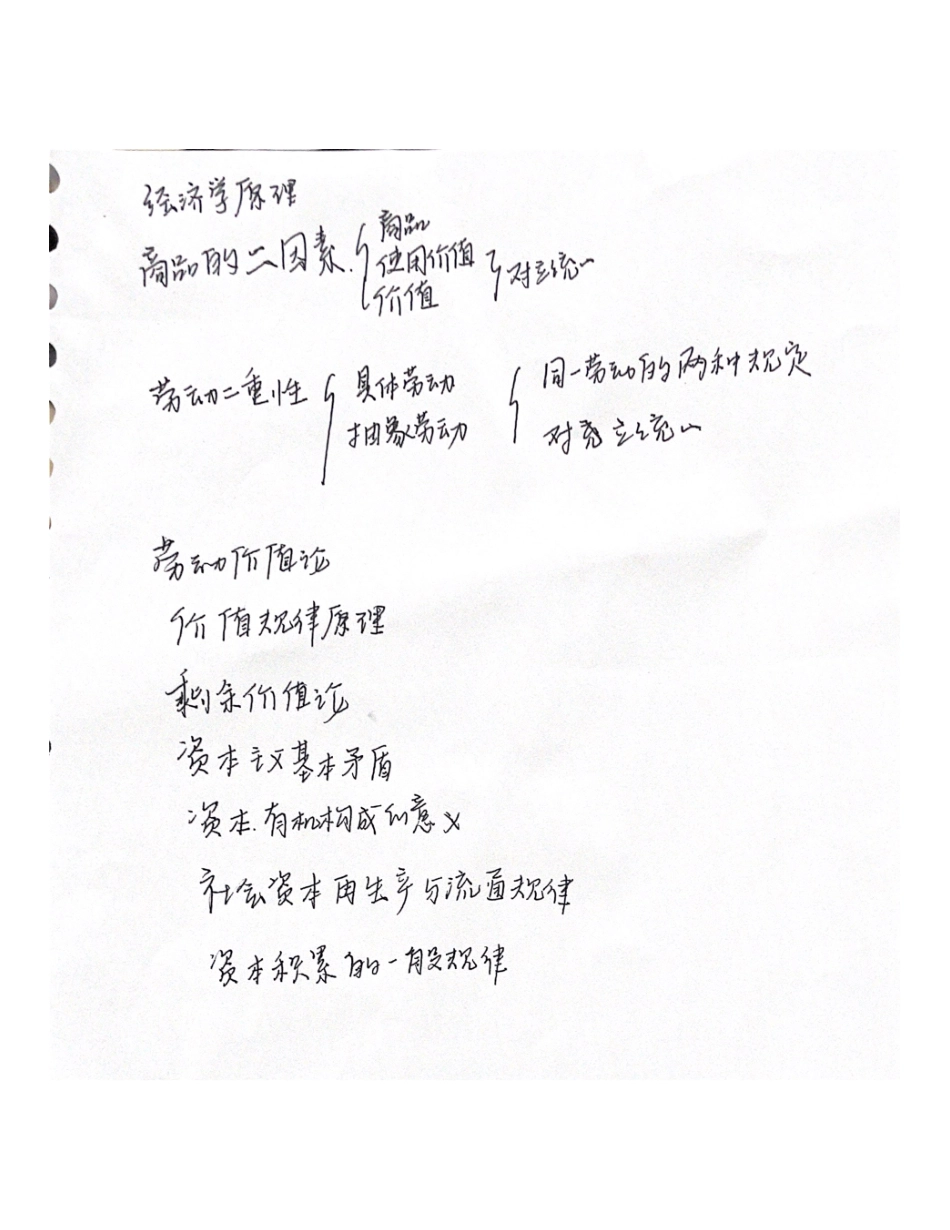 经济学原理
商品的二因素. { 商品
使用价值
价值 } 对立统一
劳动二重性 { 具体劳动
抽象劳动 { 同一劳动的两种规定
对立统一
劳动价值论
价值规律原理
剩余价值论
资本主义基本矛盾
资本有机构成的意义
社会资本再生产与流通规律
资本积累的一般规律